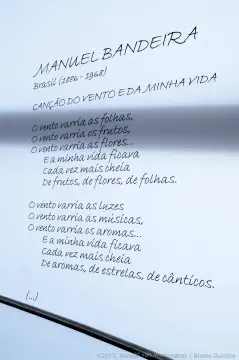 MANUEL BANDEIRA
Brasil (1886 - 1968)
CANÇÃO DO VENTO E DA MINHA VIDA
O vento varria as folhas,
O vento varria os frutos,
O vento varria as flores...
E a minha vida ficava
Cada vez mais cheia
De frutos, de flores, de folhas.
O vento varria as luzes
O vento varria as músicas,
O vento varria os aromas...
E a minha vida ficava
Cada vez mais cheia
De aromas, de estrelas, de cânticos.
(...)
©2017,